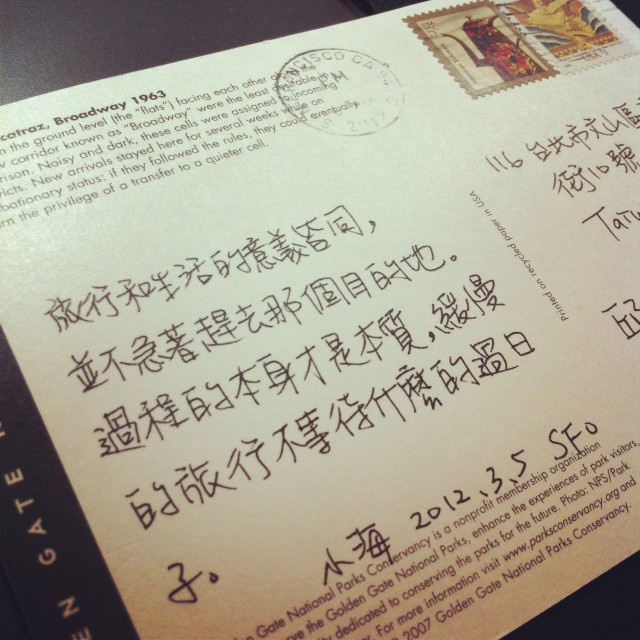 catraz, Broadway 1963
the ground level (the "flats") facing each other
corridor known as "Broadway" were the least
Noisy and dark, these cells were assigned incoming
New arrivals stayed here several weeks while on
ationary status. If they followed the rules, they could eventually
the privilege of a transfer to a quieter cell.
旅行和生活的意義答同,
並不急著趕去那個目的地。
過程的本身才是本質,緩慢
的旅行不等待什麼的過日
子。
小海 2012.3.5 SFO
116 台北市文山
街10號
Tai
邱
Printed on recycled paper in USA
EN GATE N
Gate National Parks Conservancy is a nonprofit membership organization
the Golden Gate National Parks, enhance the experiences of park visitors,
dedicated to conserving the parks for the future. Photo: NPS/Park
For more information visit www.parksconservancy.org and
2007 Golden Gate National Parks Conservancy.